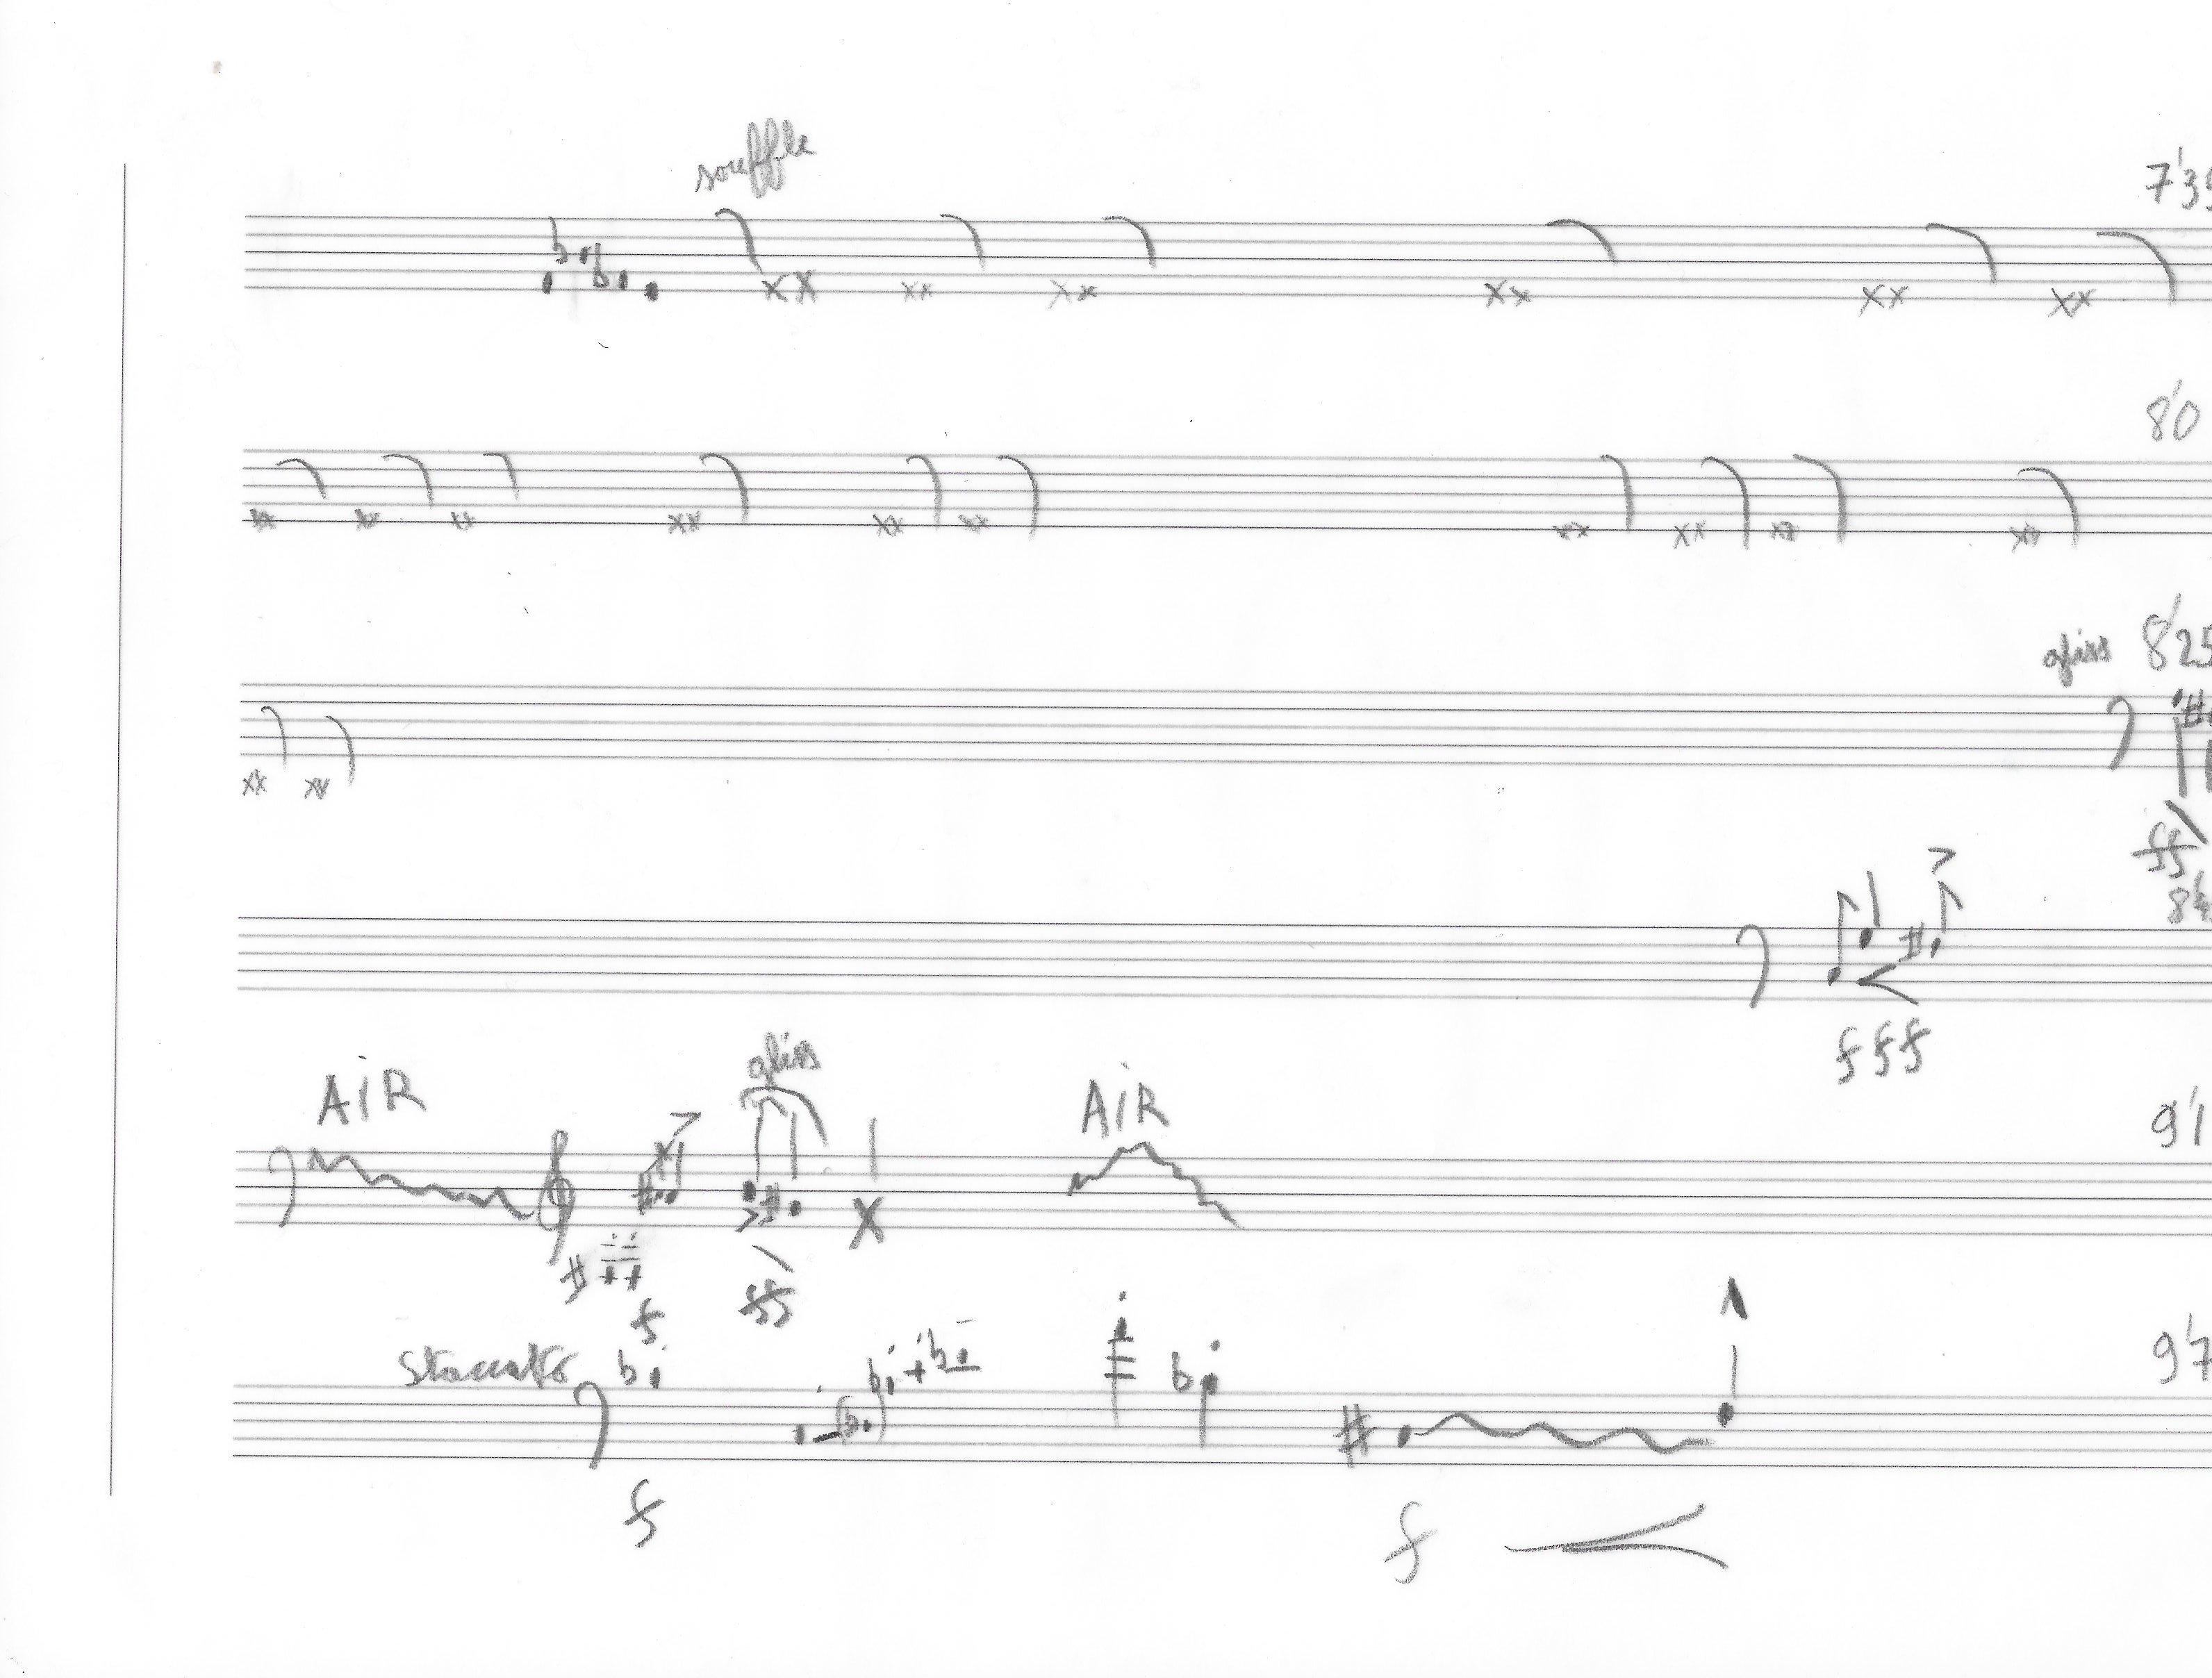 souffle
7'35
8'0
gliss 8'25
ff
fff
AiR gliss AiR
9'1
f ff
staccato
f f